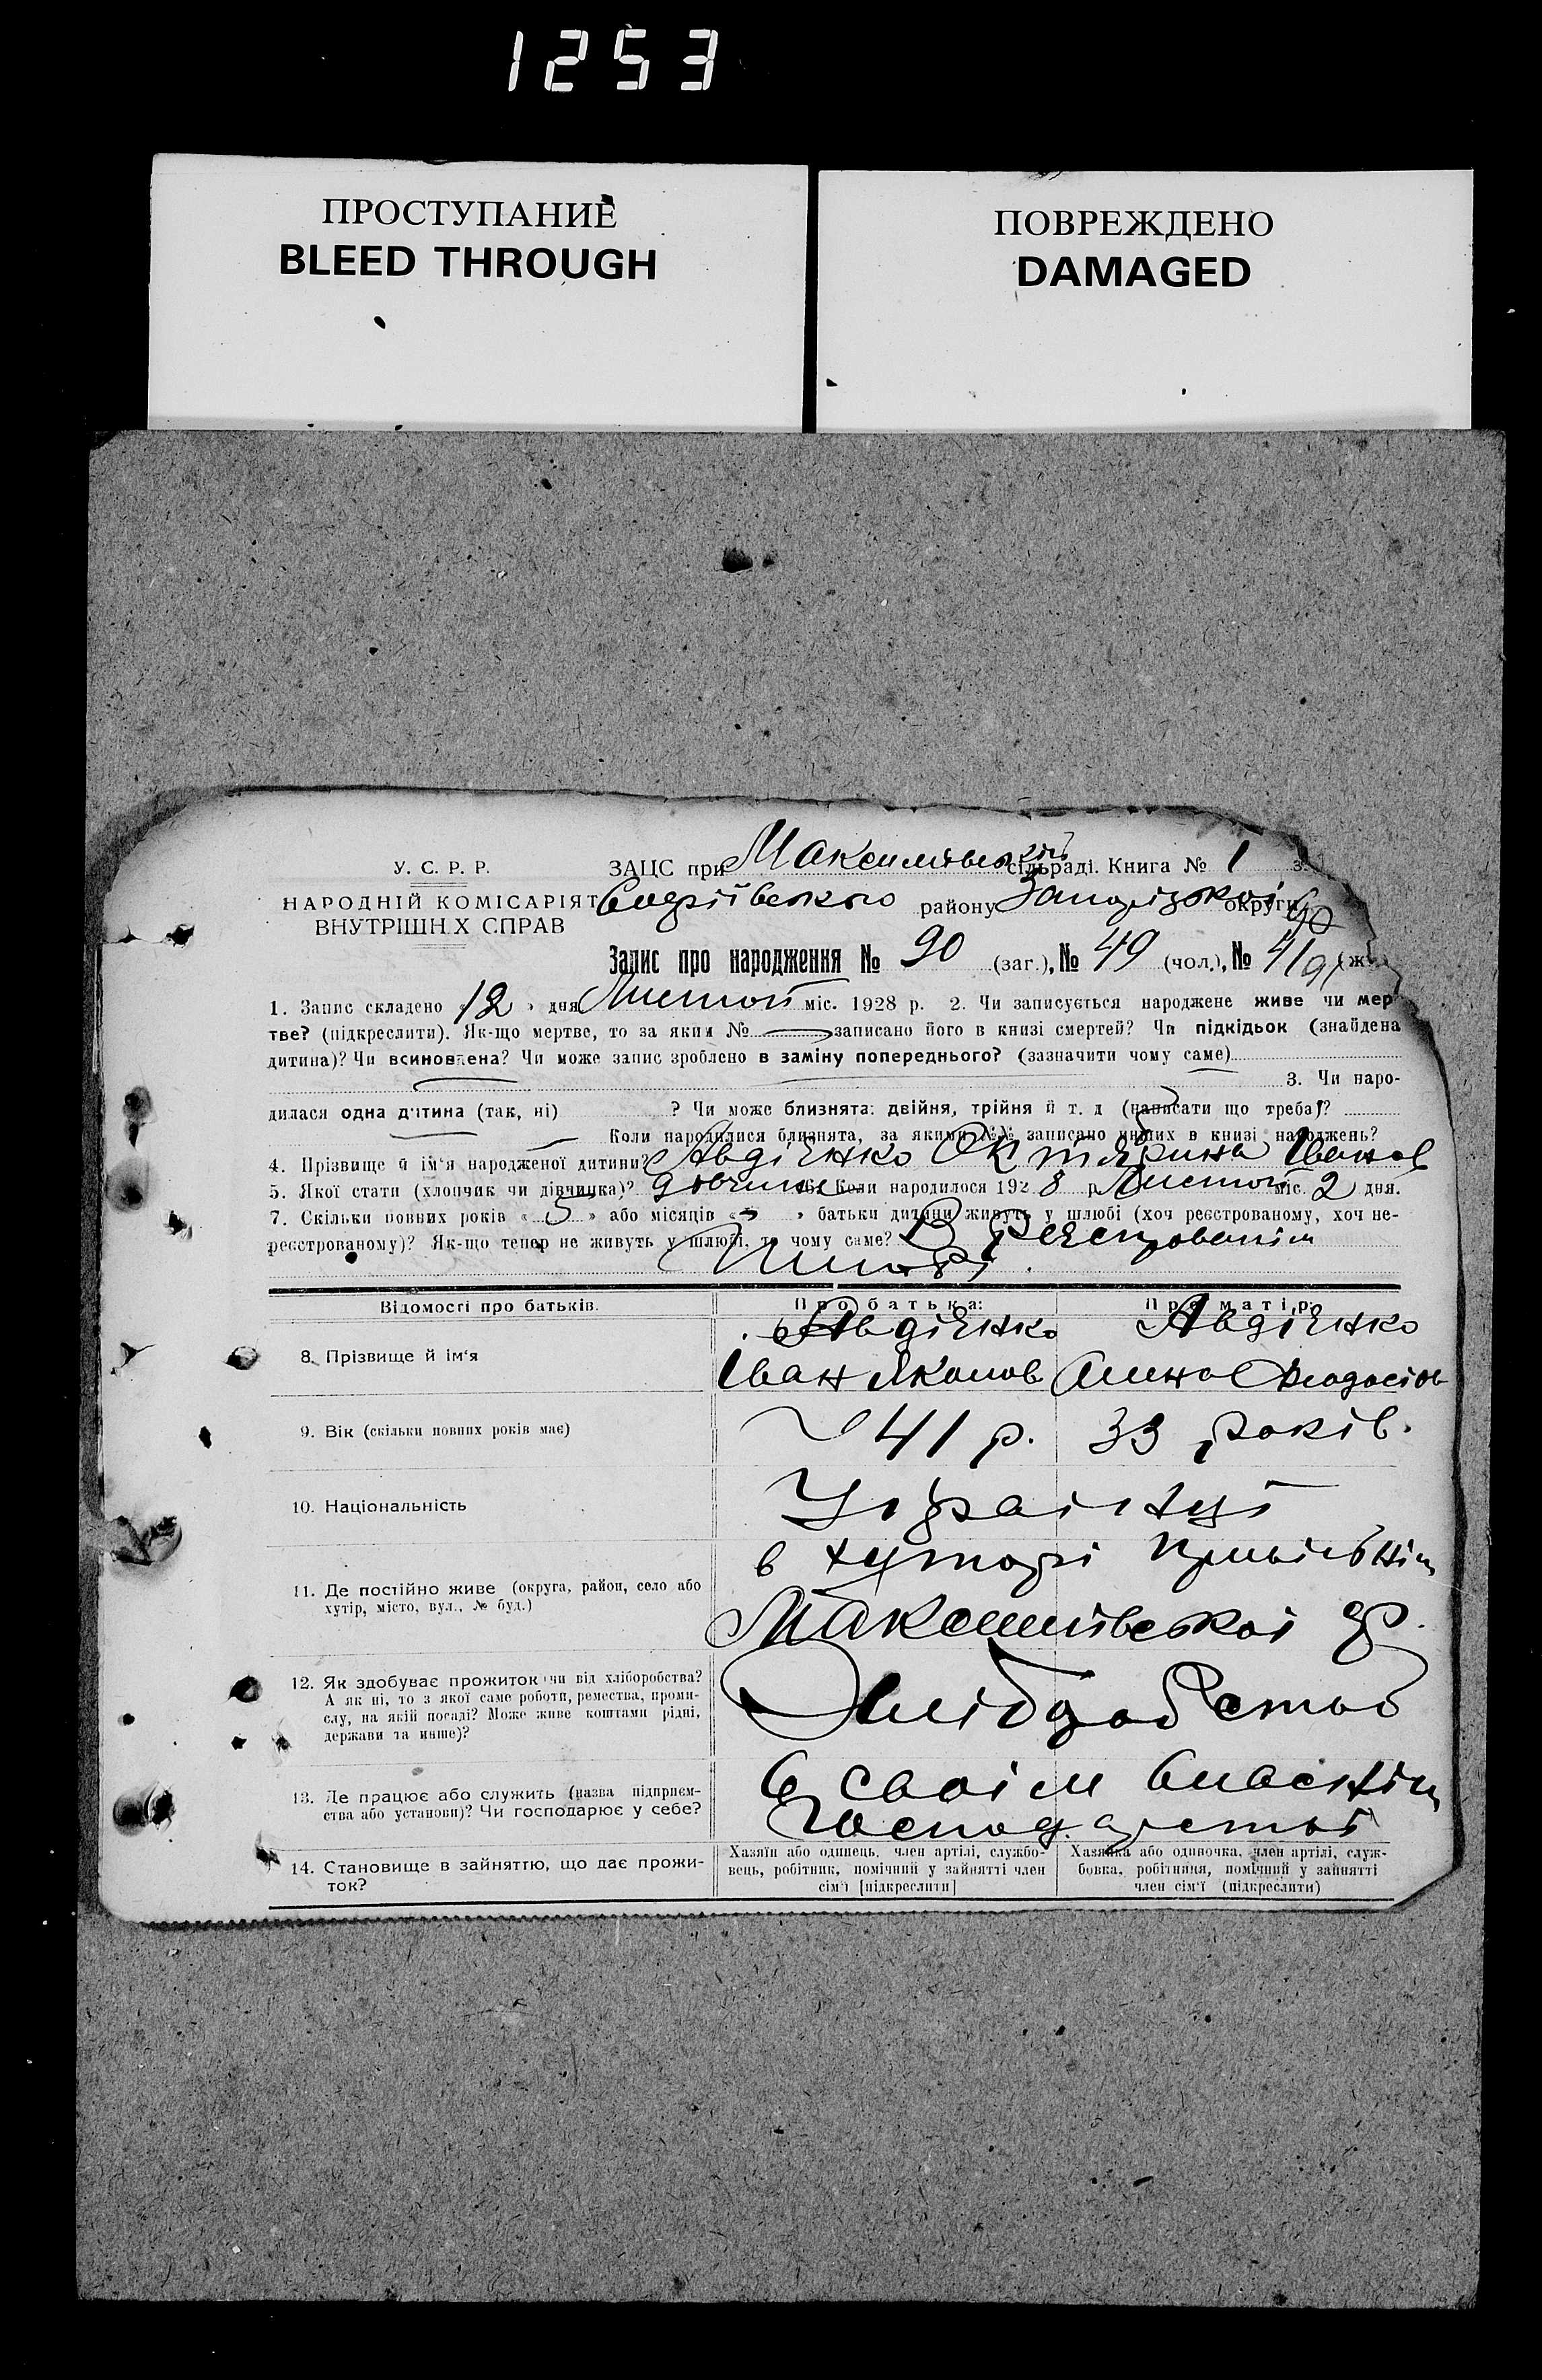 1253
ПРОСТУПАНИЕ
BLEED THROUGH
ПОВРЕЖДЕНО
DAMAGED
У. С. Р. Р.
НАРОДНІЙ КОМІСАРІЯТ
ВНУТРІШН Х СПРАВ
ЗАЦС при сільраді. Книга № 1 з
Софіївського району Запорізької округи 90
Запис про народження № 90 (заг.), № 49 (чол.), № 41 (ж
1. Запис складено «12» дня Листоп міс. 1928 р. 2. Чи записується народжене живе чи мер
тве? (підкреслити). Як-що мертве, то за яким № записано його в книзі смертей? Чи підкідьок (знайдена
дитина)? Чи всиновлена? Чи може запис зроблено в заміну попереднього? (зазначити чому саме)
3. Чи наро-
дилася одна дитина (так, ні) ? Чи може близнята: двійня, трійня й т. д (написати що треба)?
Коли народилися близнята, за якими №№ записано инших в книзі народжень?
4. Прізвище й ім'я народженої дитини? Авдієнко Октябрина Іванов
5. Якої стати (хлопчик чи дівчинка)? дівчинка 6. Коли народилося 1928 р. Листоп міс. 2 дня.
7. Скільки повних років «5» або місяців « » батьки дитини живуть у шлюбі (хоч реєстрованому, хоч не-
реєстрованому)? Як-що тепер не живуть у шлюбі, то чому саме? В
Шлюбі.
Відомості про батьків.
Про батька:
Про матір:
8. Прізвище й ім'я
Авдієнко Авдієнко
Іван Яковов Феодосіов
9. Вік (скільки повних років має)
41 р. 33 років.
10. Національність
Українці
11. Де постійно живе (округа, район, село або
хутір, місто, вул., № буд.)
в хуторі Привільнім
12. Як здобуває прожиток чи від хліборобства?
А як ні, то з якої саме роботи, ремества, проми-
слу, на якій посаді? Може живе коштами рідні,
держави та инше)?
Хліборобство
13. Де працює або служить (назва підприєм-
ства або установи)? Чи господарює у себе?
В своїм власнім
господарстві
14. Становище в зайняттю, що дає прожи-
ток?
Хазяїн або одинець, член артілі, службо-
вець, робітник, помічний у зайнятті член
сім'ї [підкреслити]
Хазяйка або одиночка, член артілі, служ-
бовка, робітниця, помічний у зайнятті
член сім'ї (підкреслити)